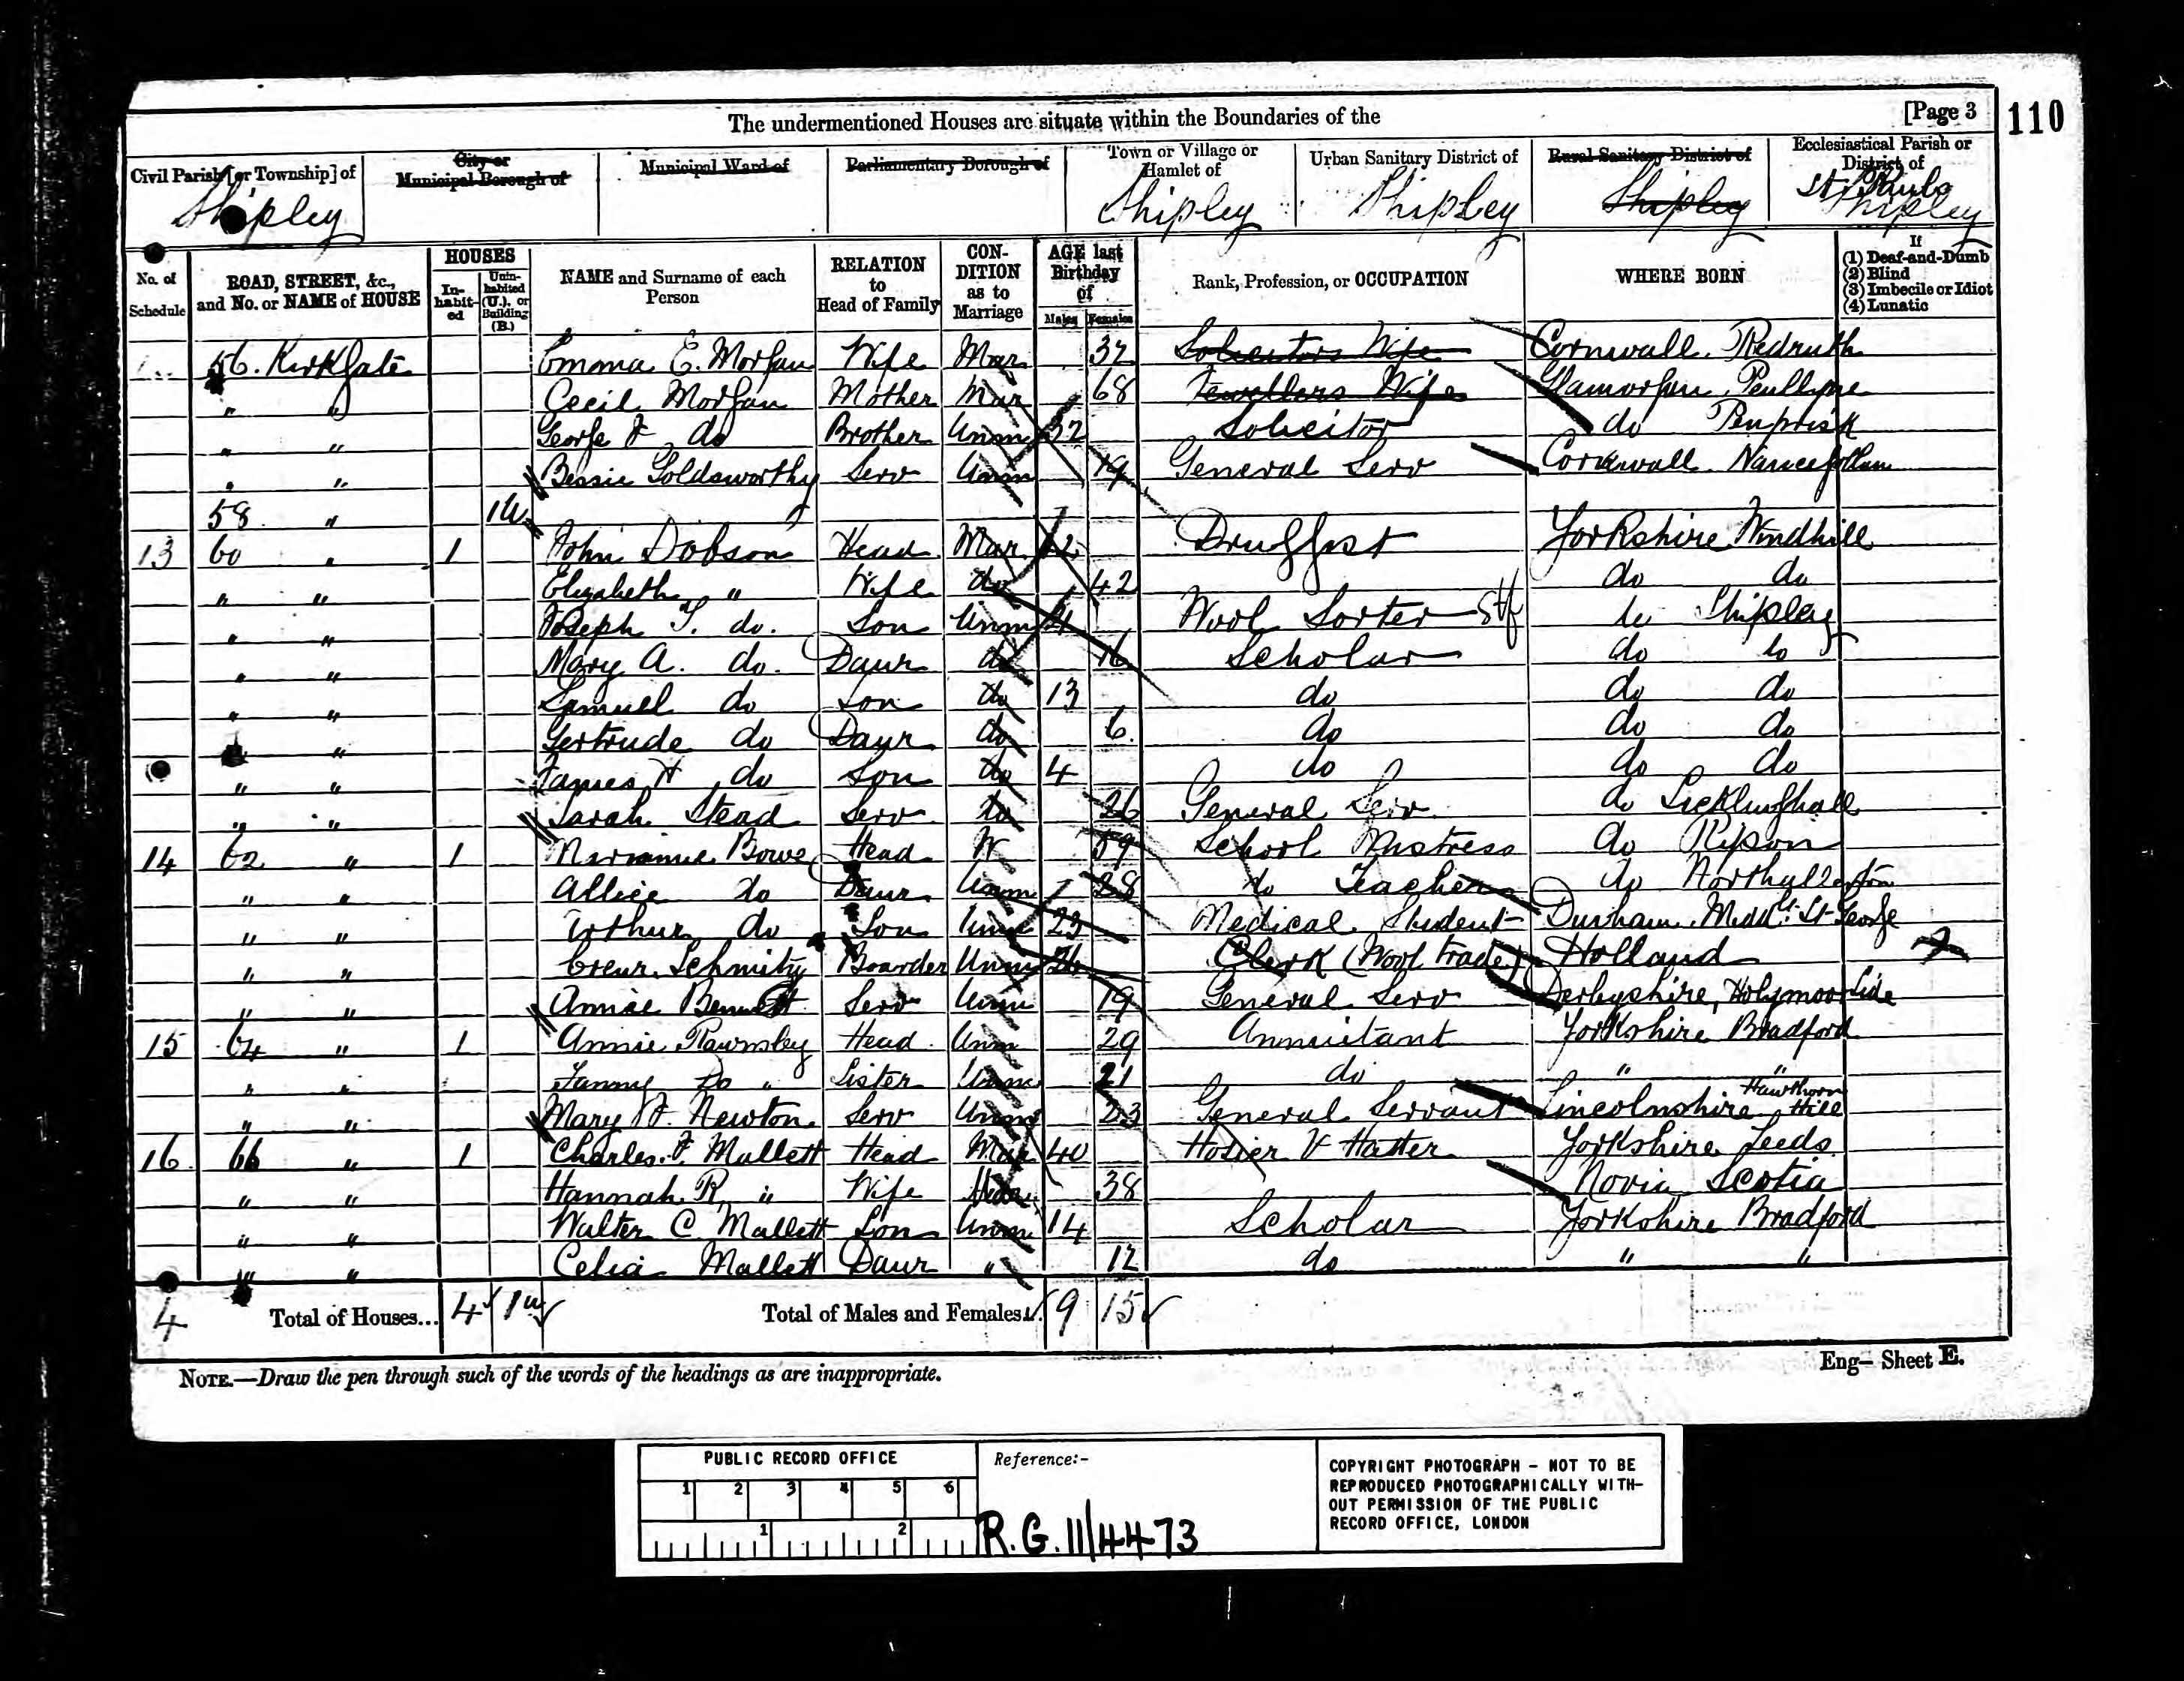 The undermentioned Houses are situate within the Boundaries of the [Page 3 110
Civil Parish [or Township] of City or Municipal Borough of Municipal Ward of Parliamentary Borough of Town or Village or Hamlet of Urban Sanitary District of Rural Sanitary District of Ecclesiastical Parish or District of
Shipley Shipley Shipley Shipley St Pauls Shipley
No. of Schedule ROAD, STREET, &c., and No. or NAME of HOUSE HOUSES Inhabited Uninhabited (U.), or Building (B.) NAME and Surname of each Person RELATION to Head of Family CONDITION as to Marriage AGE last Birthday of Males Females Rank, Profession, or OCCUPATION WHERE BORN If (1) Deaf-and-Dumb (2) Blind (3) Imbecile or Idiot (4) Lunatic
56. Kirkgate Emma E. Morgan Wife Mar 37 Solicitors Wife Cornwall Redruth
" " Cecil Morgan Mother Mar 68 Jewellers Wife Glamorgan
" " George do Brother Unm 32 Solicitor do Penprisk
" " Bessie Goldsworthy Serv Unm 19 General Serv Cornwall
58 " 1U
13 60 " 1 John Dobson Head Mar 42 Druggist Yorkshire Windhill
" " Elizabeth " Wife do 42 do do
" " Joseph T. do. Son Unm 21 Wool Sorter do Shipley
" " Mary A. do. Daur do 16 Scholar do do
" " Samuel do Son do 13 do do do
" " Gertrude do Daur do 6 do do do
" " James H do Son do 4 do do do
" " Sarah Stead Serv do 26 General Serv do Sicklinghall
14 62 " 1 Marianne Bowe Head W 59 School Mistress do Ripon
" " Allice do Daur Unm 28 do Teacher do Northallerton
" " Arthur do Son Unm 23 Medical Student Durham. Midd. St George
" " Schmitz Boarder Unm 26 Clerk (Wool trade) Holland
" " Annie Bennett Serv Unm 19 General Serv Derbyshire, Holymoorside
15 64 " 1 Annie Rawnsley Head Unm 29 Annuitant Yorkshire Bradford
" " Fanny Do " Sister Unm 21 do " "
" " Mary Newton Serv Unm 23 General Servant Lincolnshire Hawthorn Hill
16 66 " 1 Charles. F. Mallett Head Mar 40 Hosier & Hatter Yorkshire Leeds
" " Hannah R " Wife Mar 38 Novia Scotia
" " Walter C Mallett Son Unm 14 Scholar Yorkshire Bradford
" " Celia Mallett Daur " 12 do " "
4 Total of Houses... 4 1u Total of Males and Females.. 9 15
NOTE.—Draw the pen through such of the words of the headings as are inappropriate. Eng– Sheet E.
PUBLIC RECORD OFFICE
1 2 3 4 5 6
1 2
Reference:-
R.G. 11/4473
COPYRIGHT PHOTOGRAPH - NOT TO BE
REPRODUCED PHOTOGRAPHICALLY WITH-
OUT PERMISSION OF THE PUBLIC
RECORD OFFICE, LONDON